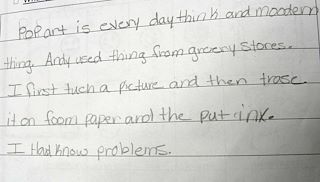 Pop art is every day think and moodern
thing. Andy used thing from grocery stores.
I first tuch a picture and then trase
it on foom paper and the put ink.
I Had know problems.